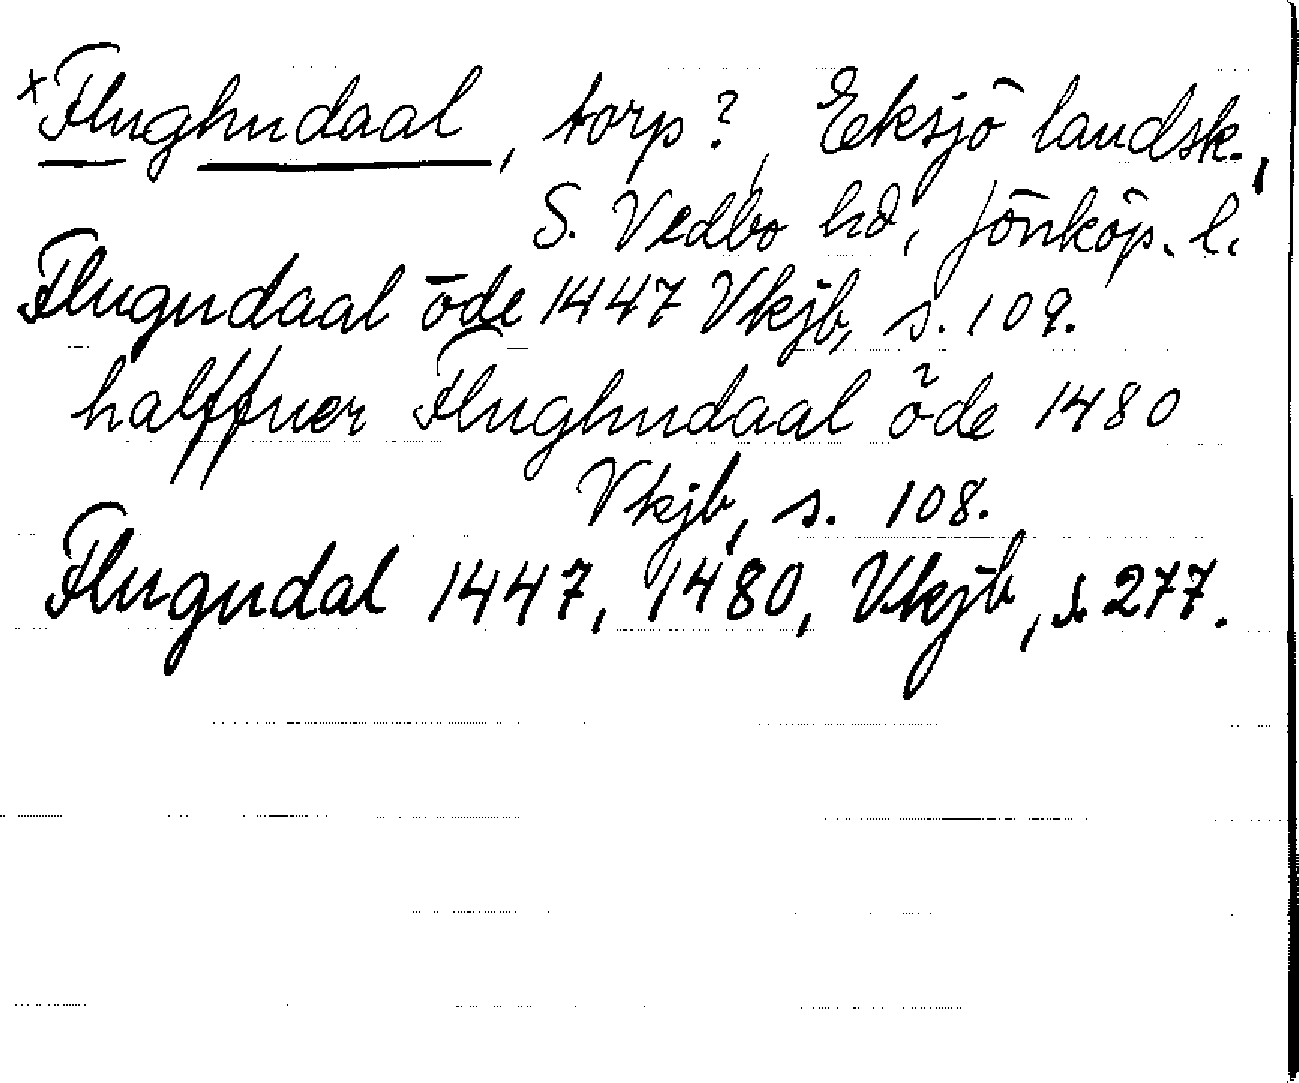 +Flughndaal, torp?, Eksjö landsk.,
S. Vedbo hd, Jönköp. l.
Flugndaal öde 1447 Vkjb, s. 109.
halffner Flughndaal öde 1480
Vkjb, s. 108.
Flugndal 1447, 1480, Vkjb, s 277.